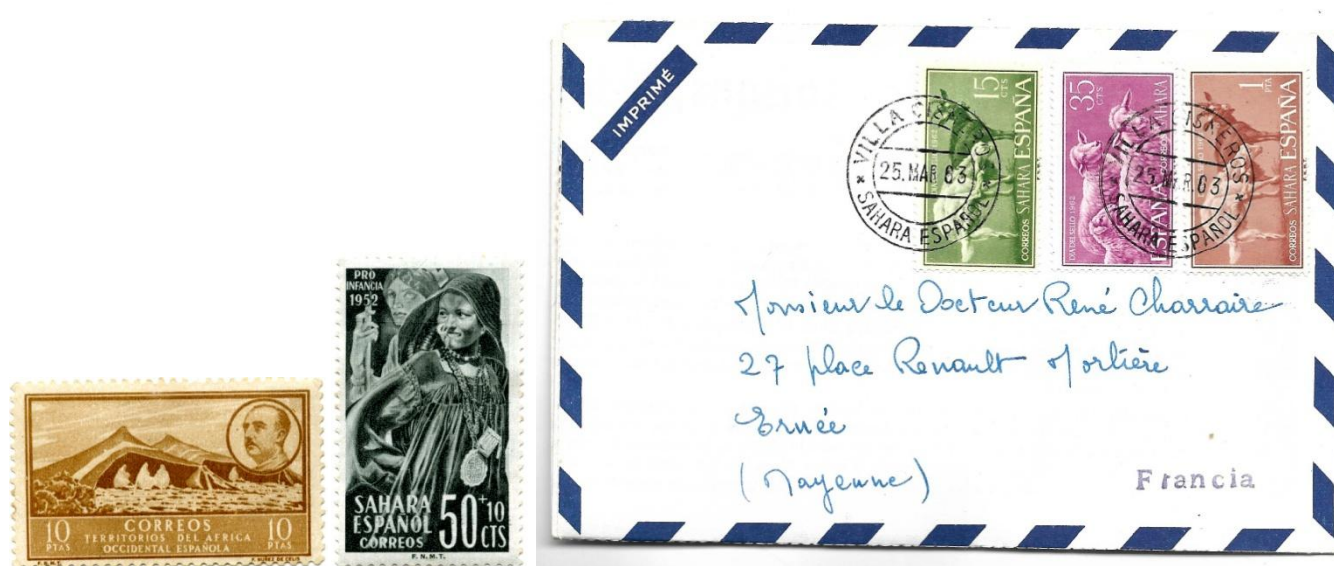 10
PTAS
CORREOS
TERRITORIOS DEL AFRICA
OCCIDENTAL ESPAÑOLA
10
PTAS
F.N.M.T.
PRO
INFANCIA
1952
SAHARA
ESPAÑOL
CORREOS
50+10
CTS
F.N.M.T.
IMPRIMÉ
15
CTS
CORREOS SAHARA ESPAÑA
35
CTS
DIA DEL SELLO 1962
ESPAÑA
CORREOS SAHARA
1
PTA
CORREOS SAHARA ESPAÑA
VILLA CISNEROS
25.MAR.63
SAHARA ESPAÑOL
VILLA CISNEROS
25.MAR.63
SAHARA ESPAÑOL
Monsieur le Docteur René Charraire
27 place Renault Morlière
Ernée
(Mayenne)
Francia